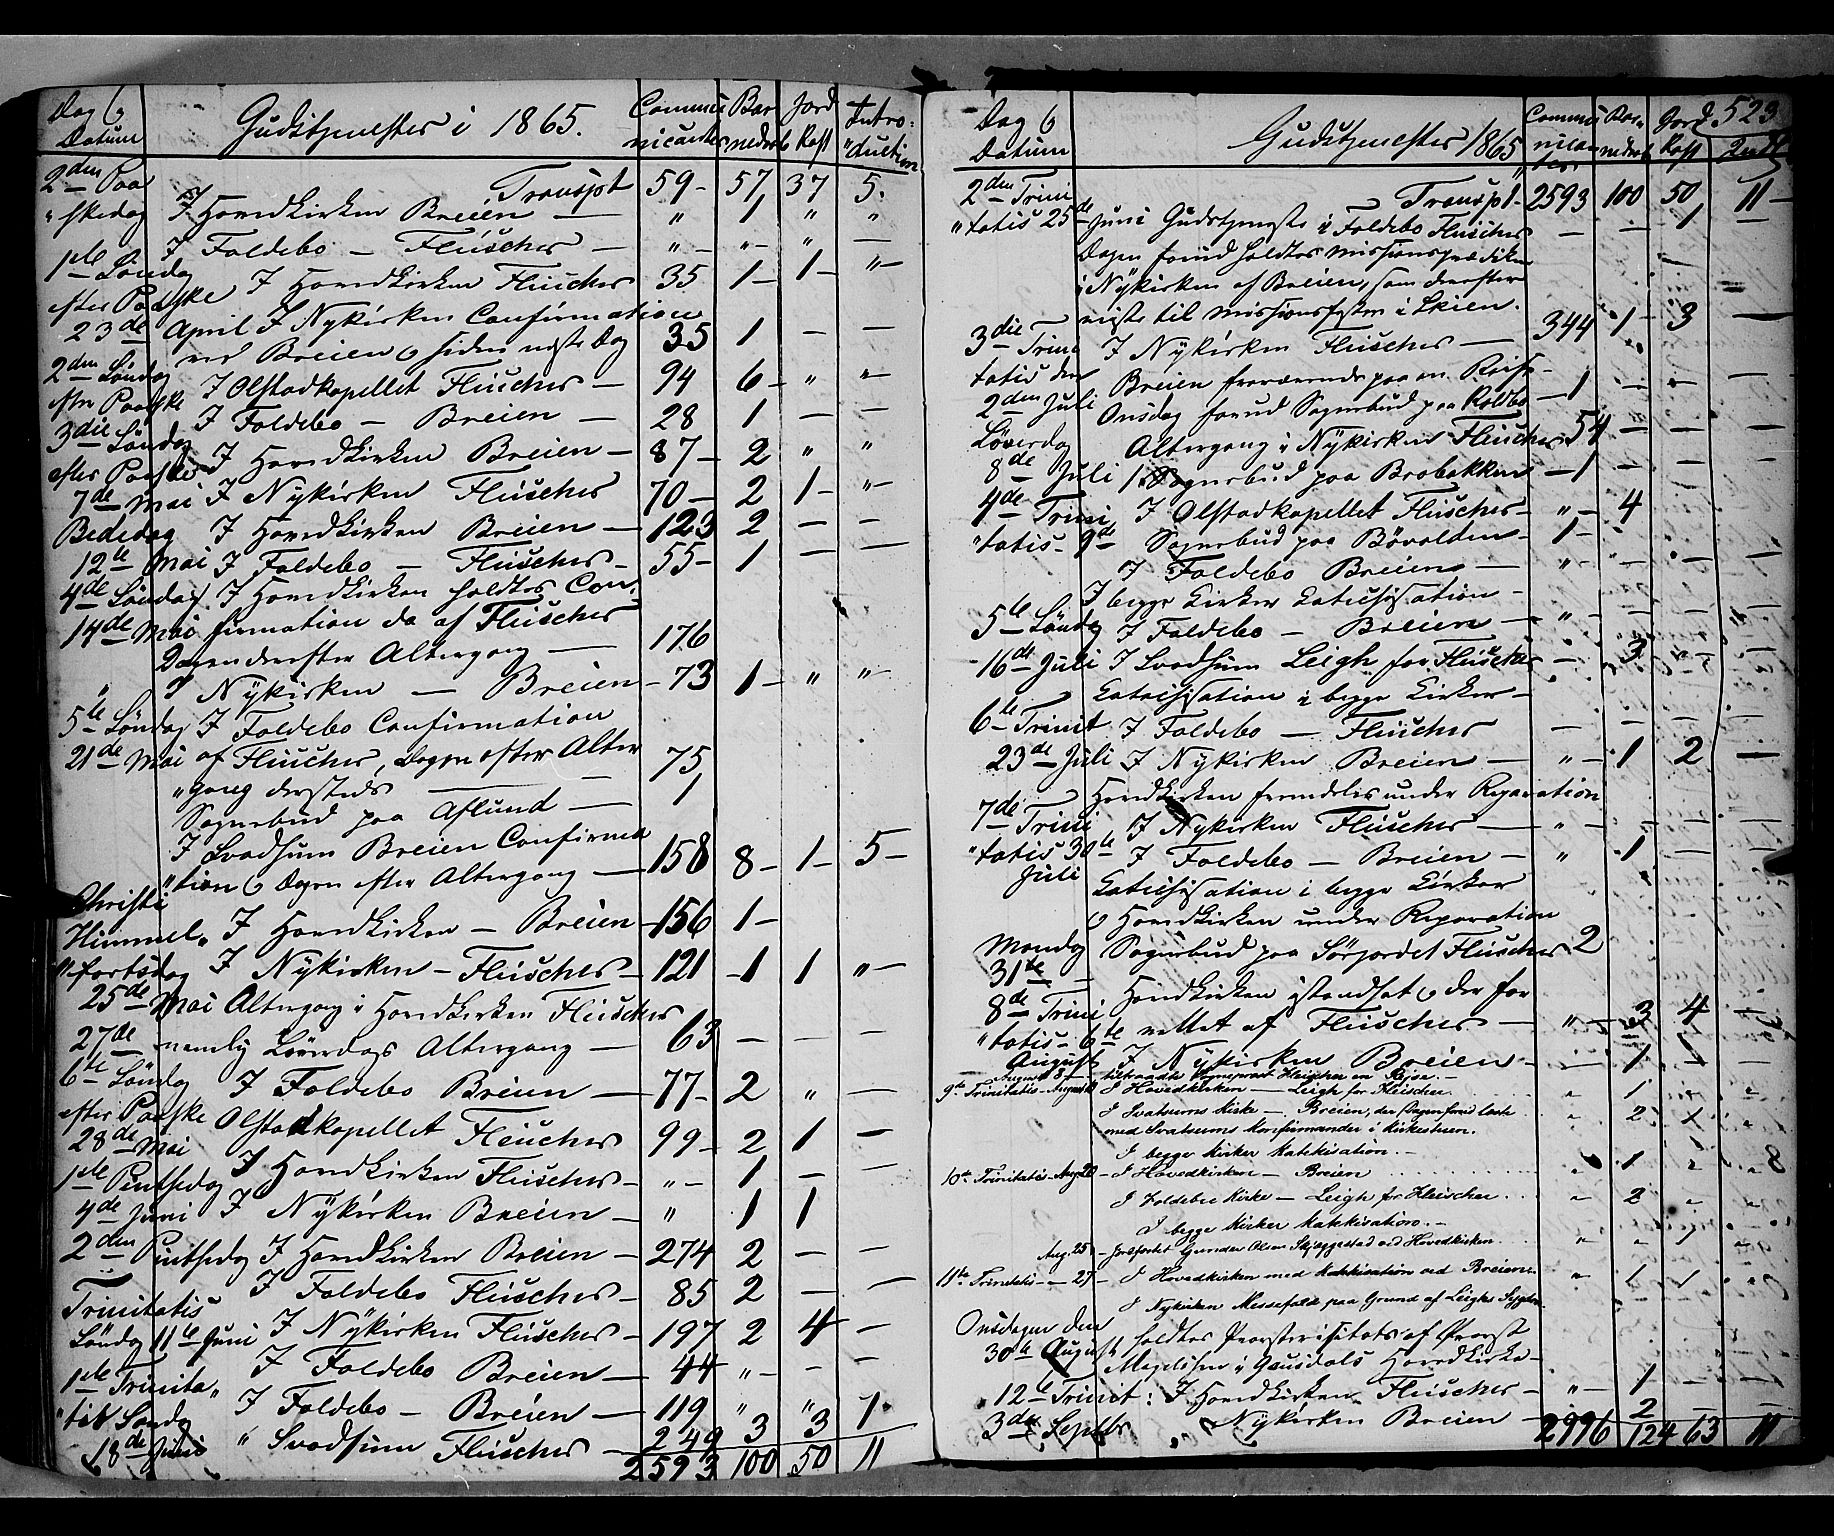 Dag &
Datum
Gudstjenester i 1865.
Commu
nicanter
Bar
nedaab
Jord
kast
Intro=
duction
2den Paa
skedag
Transpt 59- 57, 37 5.
I Hovedkirken Breien — " 1 " "
I Foldebo — Fleischer — " - " - " —
1ste Søndag
efter Paaske I Hovedkirken Fleischer 35 1- 1- "-
23de April I Nykirken Confirmation
ved Breien & siden neste Dag 35 1 — —
2den Søndag
eftr Paaske I Olstadkapellet Fleischer — 94 6- " "-
I Foldebo — Breien — 28 1 — —
3die Søndag
efter Paaske I Hovedkirken Breien — 87- 2 " "
7de Mai I Nykirken Fleischer 70- 2 1- "-
Bededag I Hovedkirken Breien — 123 2 — —
12te Mai I Foldebo — Fleischer - 55- 1 — —
4de Søndag I Hovedkirken holdtes Con-
14de Mai firmation da af Fleischer
Dagen derefter Altergang — 176
" I Nykirken — Breien - 73 1- " "-
5te Søndag I Foldebo Confirmation
21de Mai af Fleischer, Dagen efter Alter
"gang dersteds — 75,
Sognebud paa Aflund — 1
I Svadsum Breien Confirma
"tion & Dagen efter Altergang — 158 8- 1- 5-
Christi
Himmel-
"fartsdag I Hovedkirken — Breien - 156 1-
I Nykirken - Fleischer - 121 -1 1 "-
25de Mai Altergang i Hovedkirken Fleischer
27de — nemlig Løverdags Altergang — 63 — — —
6te Søndag I Foldebo Breien — 77- 2 " —
efter Paaske Olstadkapellet Fleischer 99- 2 1 —
28de Mai
1ste Pintsedag I Hovedkirken Fleischer - "- 1 —
4de Juni I Nykirken Breien — " 1 1
2den Pintsedag I Hovedkirken Breien — 274 2 — —
I Foldebo Fleischer - 85 2 — —
Trinitatis
Søndag 11te Juni I Nykirken Fleischer - 197 2 4 —
I Foldebo Breien — 44 "- — —
1ste Trinita"
"tis Søndag I Foldebo — Breien — 119 " " 1.
18de Juni " Svadsum Fleischer - 249 3 3
2593 100 50 11
Dag &
Datum
Gudstjenester 1865
Commu
nican
ter
Bar-
nedaab
Jord
kast
523
2den Trini
"tatis 25de Transpt- 2593 100 50 11-
Juni Gudstjeneste i Foldebo Fleischer — — 1 —
Dagen forud holdtes Missionspræken
i Nykirken af Breien, som derefter
reiste til Missionsfesten i Skien.
3die Trini
tatis den I Nykirken Fleischer — 344 -1- 3 —
2den Juli Breien fraværende paa en Reise-
Onsdag forud Sognebud paa Koldbo — 1 — — —
Løverdag Altergang i Nykirken Fleischer 54 — — —
8de Juli Sognebud paa Brobakken — 1 — — —
4de Trini I Olstadkapellet Fleischer - "- 4 — —
"tatis- 9de Sognebud paa Bövolden - 1- — — —
I Foldebo Breien — "- — — —
I begge Kirker Catechisation -
5te Søndag I Foldebo — Breien — "- — — —
16de Juli I Svadsum Leigh for Fleischer — 3 "- —
Catechisation i begge Kirker -
6te Trinit I Foldebo — Fleischer — — — —
23de Juli I Nykirken Breien — "- 1 2 —
Hovedkirken fremdeles under Reparation
7de Trini I Nykirken Fleischer — "- — — —
"tatis 30te I Foldebo — Breien — " 1 — —
Juli Catechisation i begge Kirker
& Hovedkirken under Reparation
Mandag
31te — Sognebud paa Sørjordet Fleischer 2
8de Trini Hovedkirken istandsat & der for
"tatis- 6te rettet af Fleischer — "- 3 4 —
August I Nykirken Breien - — 1 -
August 8 — tiltraadte Sognepræst Fleischer en Reise.-
9de Trinitatis-August 13 I Hovedkirken — Leigh for Fleischer. " 1 " "
I Svatsums Kirke — Breien, der Dagen forud læste " 2 1 "
med Svatsums Konfirmander i Kirkestuen.
I begge Kirker Katekisation.-
10de Trinitatis-Aug. 20 - I Hovedkirken — Breien " 1 " 8
I Foldebo Kirke — Leigh for Fleischer. " 2 " "
I begge Kirker Katekisation.-
Aug. 25 - jordfæstet Gunder Olsen Skjæggestad ved Hovedkirken. " " 1 "
11te Trinitatis — 27 - I Hovedkirken med Katekisation ved Breien. " 1 1 "
I Nykirken Messefald paa Grund af Leighs Sygdom.
Onsdagen den
30te August holdtes Provstevisitats af Provst
Magelssen i Gausdals Hovedkirke-
12te Trinit: I Hovedkirken Fleischer - "- 1 — —
3de Septb Nykirken Breien - 2 —
2996 124 63 11